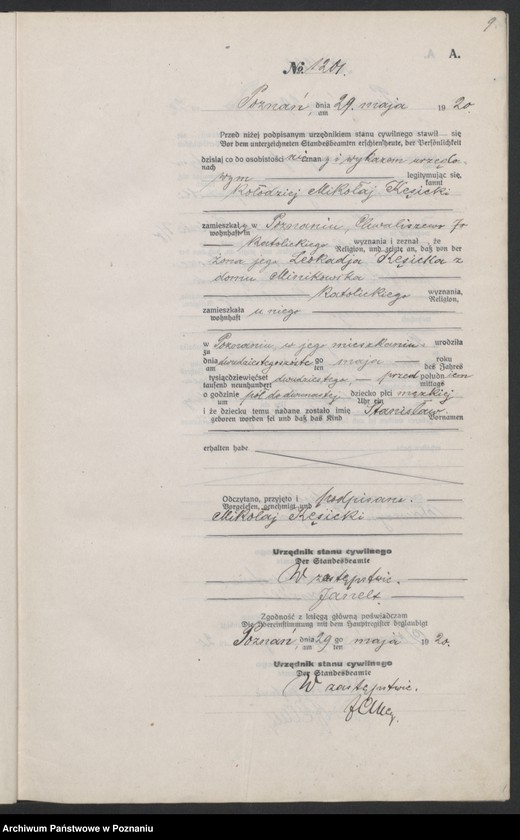 9.
A.
№ 1201.
Poznań, dnia 29. maja 1920.
am
Przed niżej podpisanym urzędnikiem stanu cywilnego stawił — się
Vor dem unterzeichneten Standesbeamten erschien heute, der Persönlichkeit
dzisiaj co do osobistości znany i wykazem urzędo-
nach
wym — legitymując się,
kannt
kołodziej Mikołaj Kęsicki
zamieszkały w Poznaniu, Chwaliszewo
wohnhaft in
— katolickiego wyznania i zeznał, że
Religion, und zeigte an, daß von der
żona jego Leokadja Kęsicka z
domu Minikowska
— katolickiego wyznania,
Religion,
zamieszkała u niego —
wohnhaft
w Poznaniu, w jego mieszkaniu urodziła
zu
dnia dwudziestego szóstego maja — roku
am ten des Jahres
tysiącdziewięćset dwudziestego, — przed południem
tausend neunhundert mittags
o godzinie pół do dwunastej dziecko płci męzkiej
um Uhr ein
i że dziecku temu nadane zostało imię Stanisław.
geboren worden sei und daß das Kind Vornamen
erhalten habe
Odczytano, przyjęto i podpisano. —
Vorgelesen, genehmigt und
Mikołaj Kęsicki
Urzędnik stanu cywilnego
Der Standesbeamte
W zastępstwie.
Zgodność z księgą główną poświadczam
Die Übereinstimmung mit dem Hauptregister beglaubigt
Poznań, dnia 29 go maja 1920.
am ten
Urzędnik stanu cywilnego
Der Standesbeamte
W zastępstwie.
Archiwum Państwowe w Poznaniu
szukajwarchiwach.gov.pl